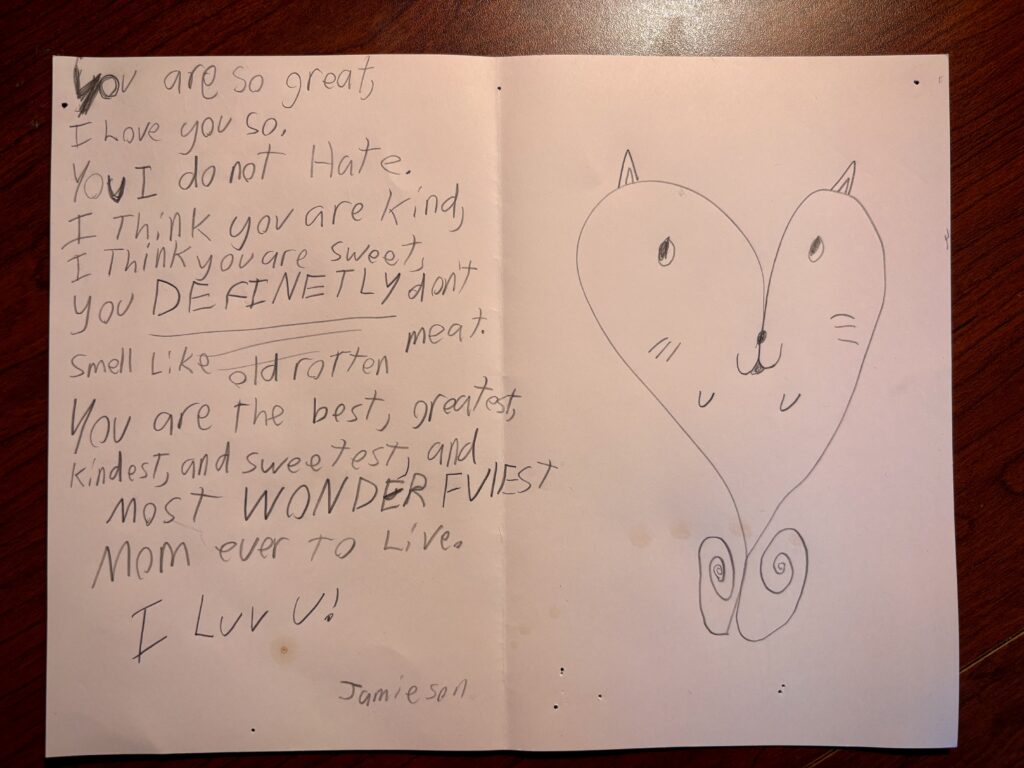 You are so great,
I Love you so.
You I do not Hate.
I Think you are kind,
I Think you are sweet,
you DEFINETLY don't
smell Like old rotten meat.
You are the best, greatest,
kindest, and sweetest, and
most WONDERFULEST
Mom ever to Live.
I Luv U!
Jamieson